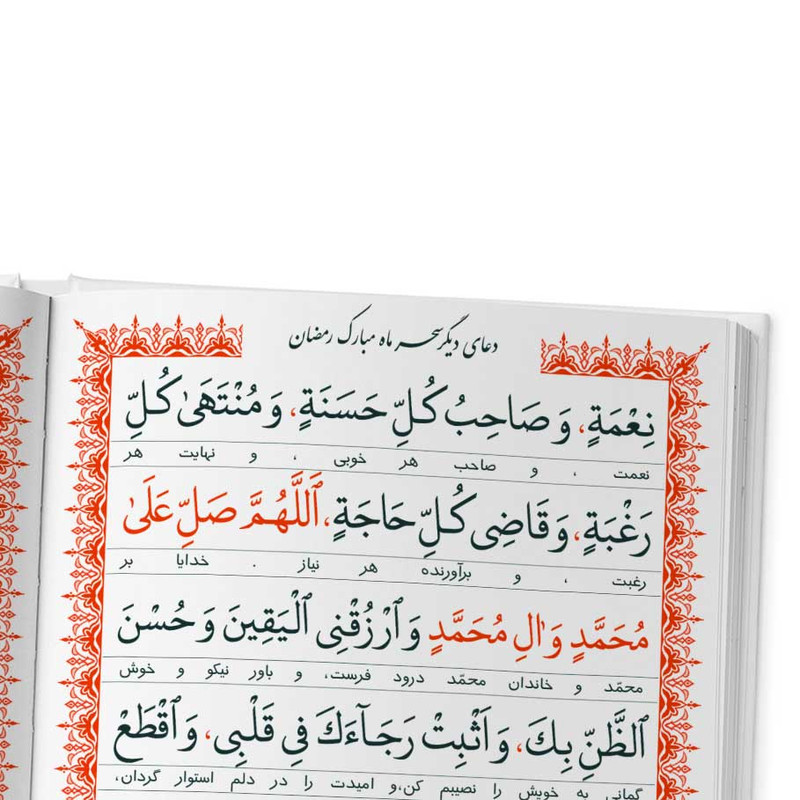 دعای دیگر سحر ماه مبارک رمضان
نِعْمَةٍ، وَ صَاحِبُ كُلِّ حَسَنَةٍ، وَ مُنْتَهَىٰ كُلِّ
نعمت ، و صاحب هر خوبی ، و نهایت هر
رَغْبَةٍ، وَ قَاضِی كُلِّ حَاجَةٍ، اَللَّهُمَّ صَلِّ عَلَىٰ
رغبت ، و برآورنده هر نیاز . خدایا بر
مُحَمَّدٍ وَ اٰلِ مُحَمَّدٍ وَ ٱرْزُقْنِی ٱلْیَقِینَ وَ حُسْنَ
محمّد و خاندان محمّد درود فرست، و باور نیکو و خوش
ٱلظَّنِّ بِكَ، وَ اَثْبِتْ رَجَآءَكَ فِی قَلْبِی، وَ ٱقْطَعْ
گمانی به خویش را نصیبم کن،و امیدت را در دلم استوار گردان،